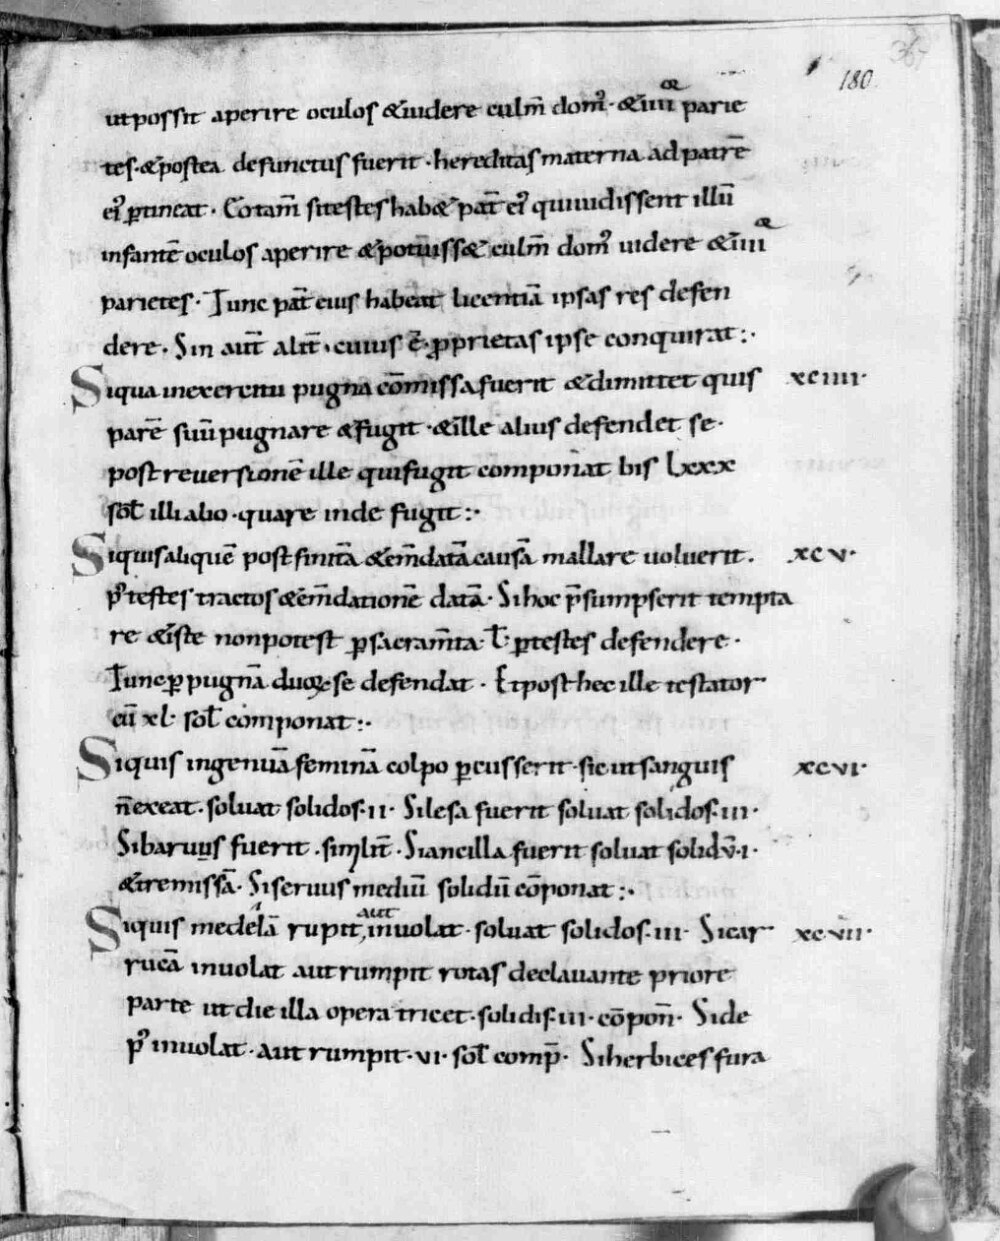 180
ut possit aperire oculos &uidere culm̄ domꝰ · &iiii^or parie
tes · &postea defunctus fuerit · hereditas materna ad patrē
eiꝰ ꝑtineat · Cotam̄ si testes hab& pat̄ eiꝰ qui uidissent illū
infantē oculos aperire &potuiss& culm̄ domꝰ uidere &iiii^or
parietes · Tunc pat̄ eius habeat licentiā ipsas res defen
dere · Sin aut̄ alit̄ · cuius ē ꝓprietas ipse conquirat :·
Siqua in exercitu pugna cōmissa fuerit &dimittet quis xciiii·
parē suū pugnare &fugit · &ille alius defendet se ·
post reuersionē ille qui fugit componat bis Lxxx
sol̄ illi alio · quare inde fugit :·
Siquis aliquē post finitā &em̄datā causā mallare uoluerit . xcv·
pꝰ testes tractos &em̄dationē datā · Si hoc p̄sumpserit tempta
re &iste non potest ꝑ sacram̄ta · ł · ꝑ testes defendere ·
Tunc ꝑ pugnā duoꝝ se defendat · Et post hec ille testator
cū xl · sol̄ componat :·
Siquis ingenuā feminā colpo ꝑcusserit · sic ut sanguis xcvi·
n̄ exeat · soluat solidos · ii · Si lesa fuerit soluat solidos · iii ·
Si baruus fuerit . simlit̄ · Si ancilla fuerit soluat solidū · i ·
&tremissā · Si seruus mediū solidū cōponat :·
Siquis medelā rupit, aut inuolat · soluat solidos · iii · Si car xcvii·
rucā inuolat aut rumpit rotas declauante priore
parte ut die illa opera tricet · solidis · iii · cōpon̄ · Si de
pꝰ inuolat · aut rumpit · vi · sol̄ comp̄ · Si herbices fura